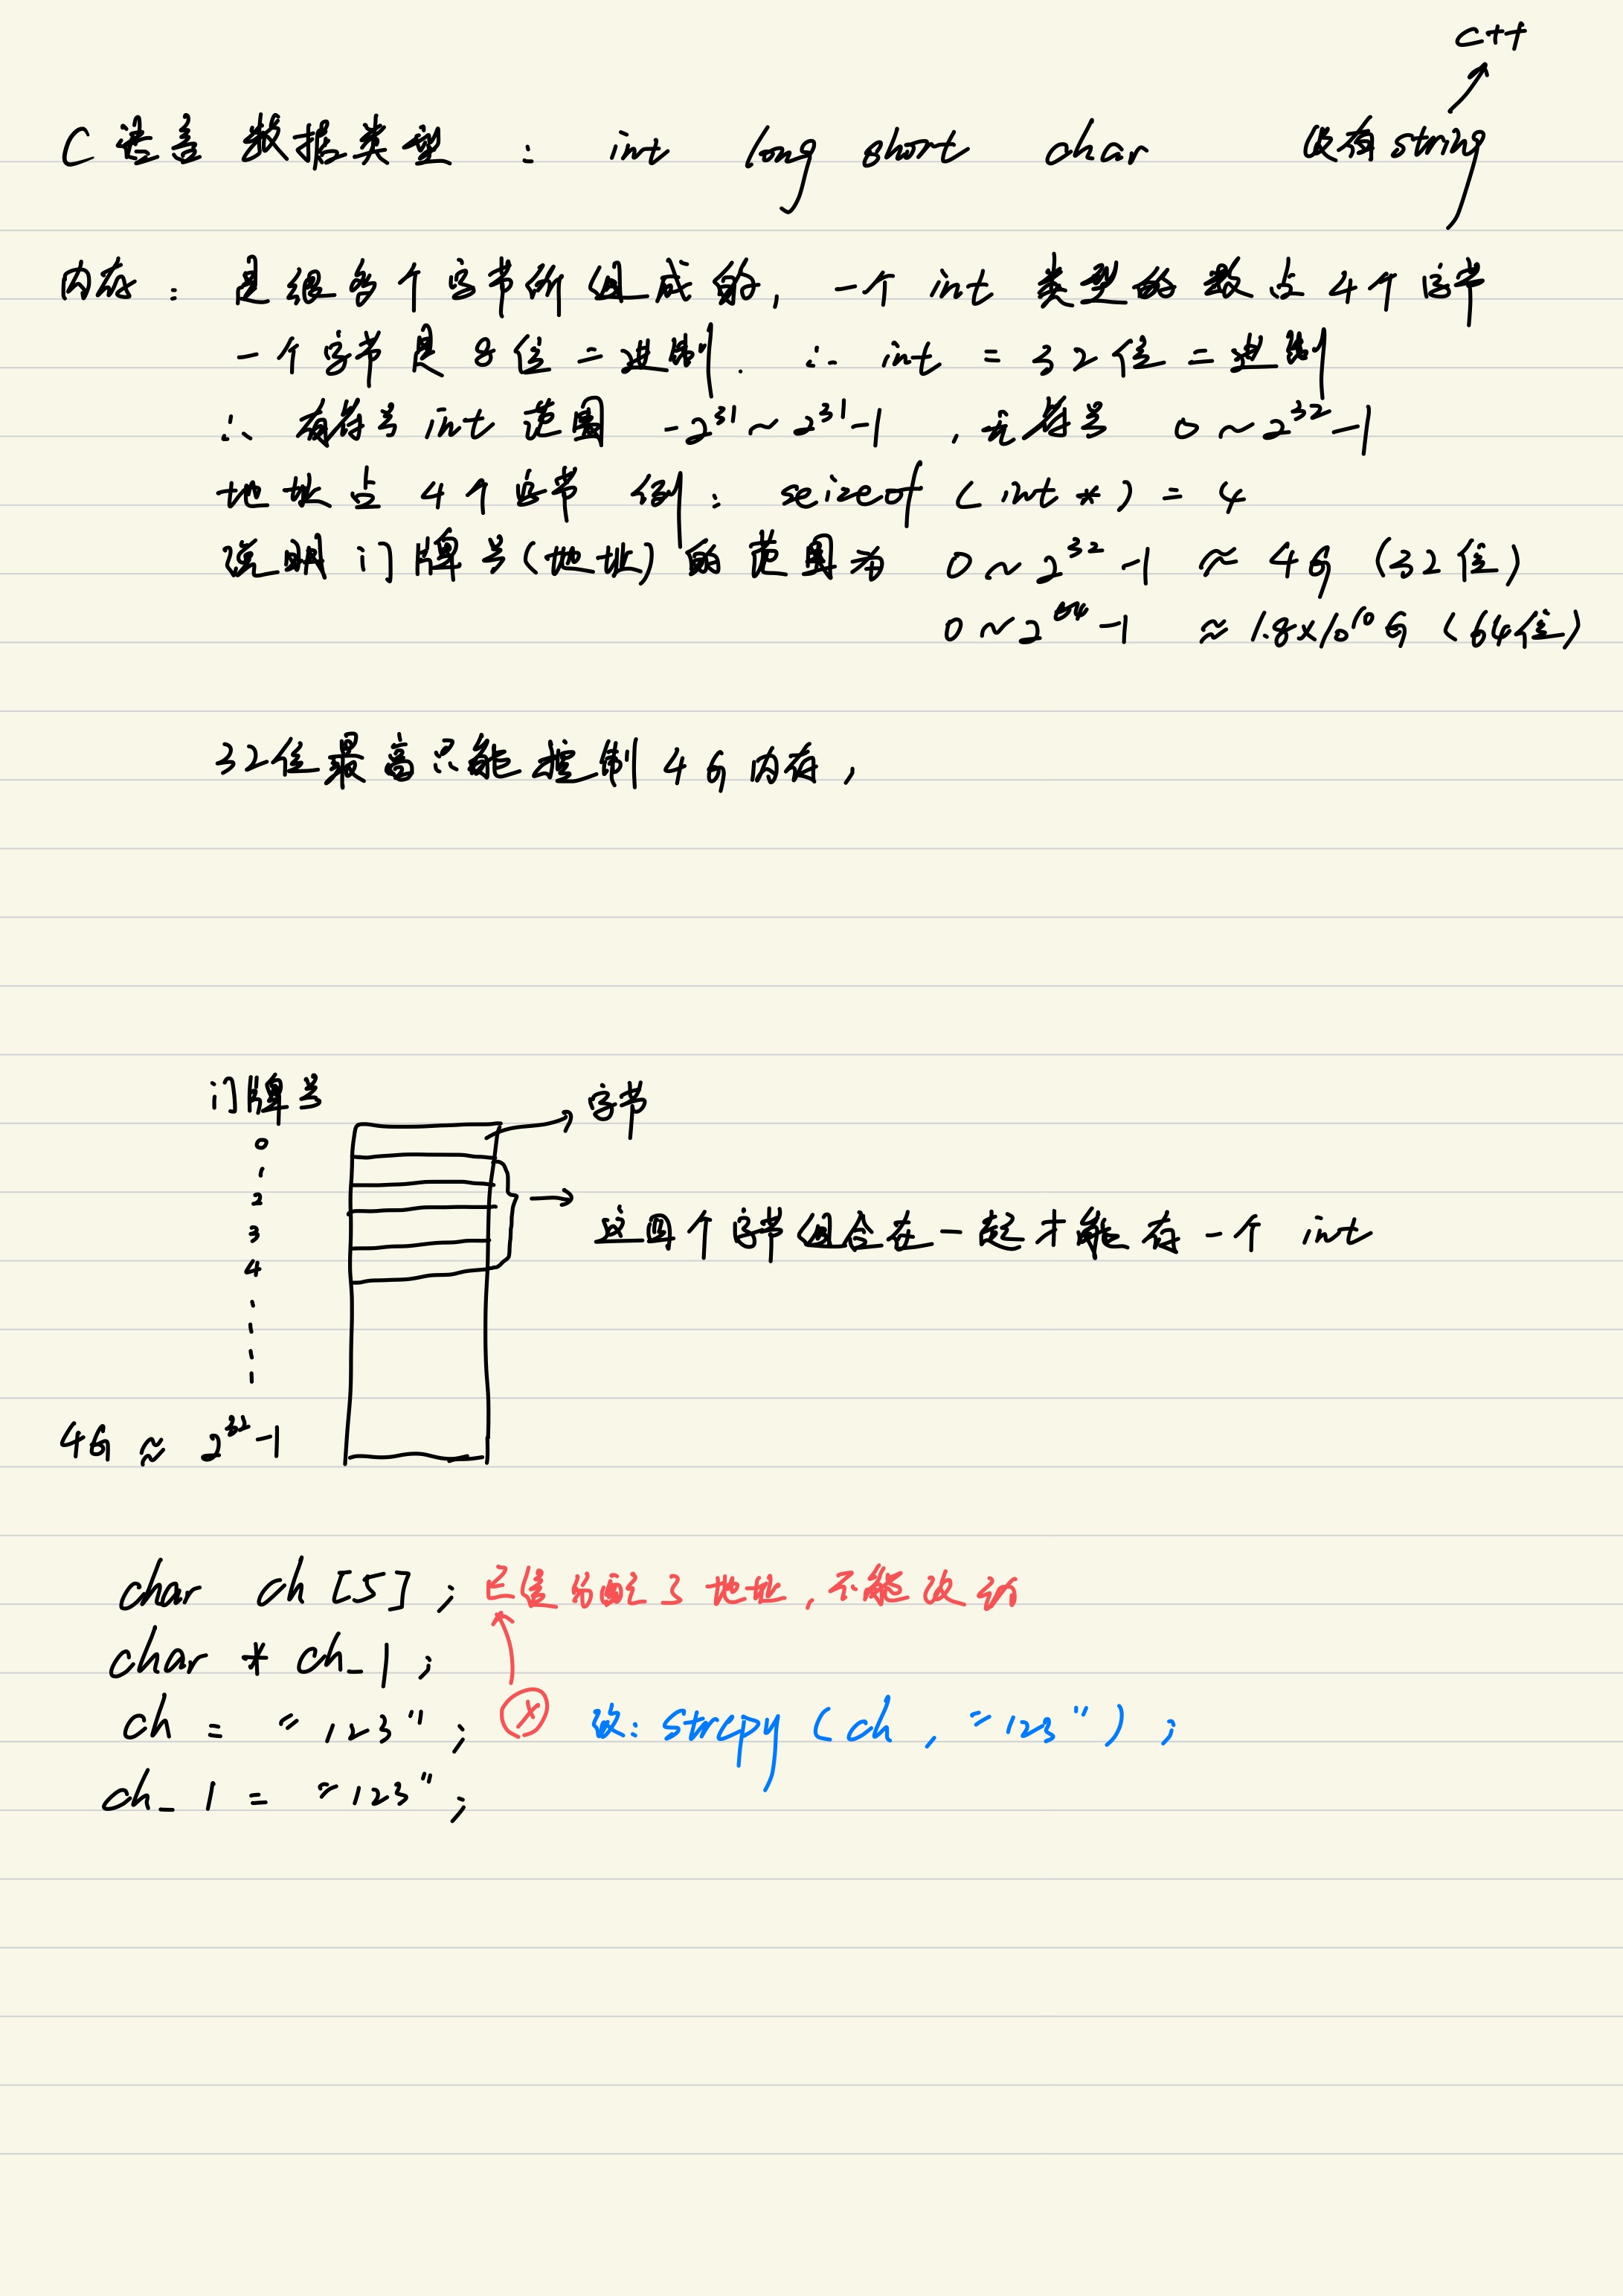 C++
C语言 数据类型 : int long short char 没有string
内存 : 是很多个字节所组成的, 一个 int 类型的数占4个字节
一个字节是8位二进制. ∴ int = 32位二进制
∴ 有符号int范围 -2^31 ~ 2^31-1 , 无符号 0~2^32-1
地址占4个字节 例: seizeof (int *) = 4
说明门牌号(地址)的范围为 0~2^32-1 ≈ 4G (32位)
0~2^64-1 ≈ 1.8×10^10 G (64位)
32位最高只能控制4G内存,
门牌号
字节
0
1
2
这四个字节组合在一起才能存一个 int
3
4
4G ≈ 2^32-1
char ch [5] ; 已经分配了地址,不能改动
char * ch_1 ;
ch = "123" ; × 改: strcpy (ch , "123") ;
ch_1 = "123" ;